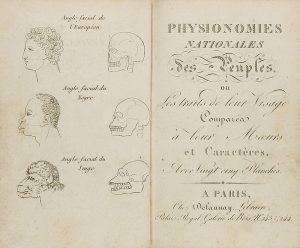 Angle facial de
l'Européen
Angle facial du
Negre
Angle facial du
Singe
PHYSIONOMIES
NATIONALES
des Peuples,
ou
Les traits de leur Visage
Comparés
à leur Mœurs
et Caractères,
Avec Vingt cinq Planches.
A PARIS,
Chez Delaunay, Libraire,
Palais Royal, Galerie de Bois, No. 243, 244.